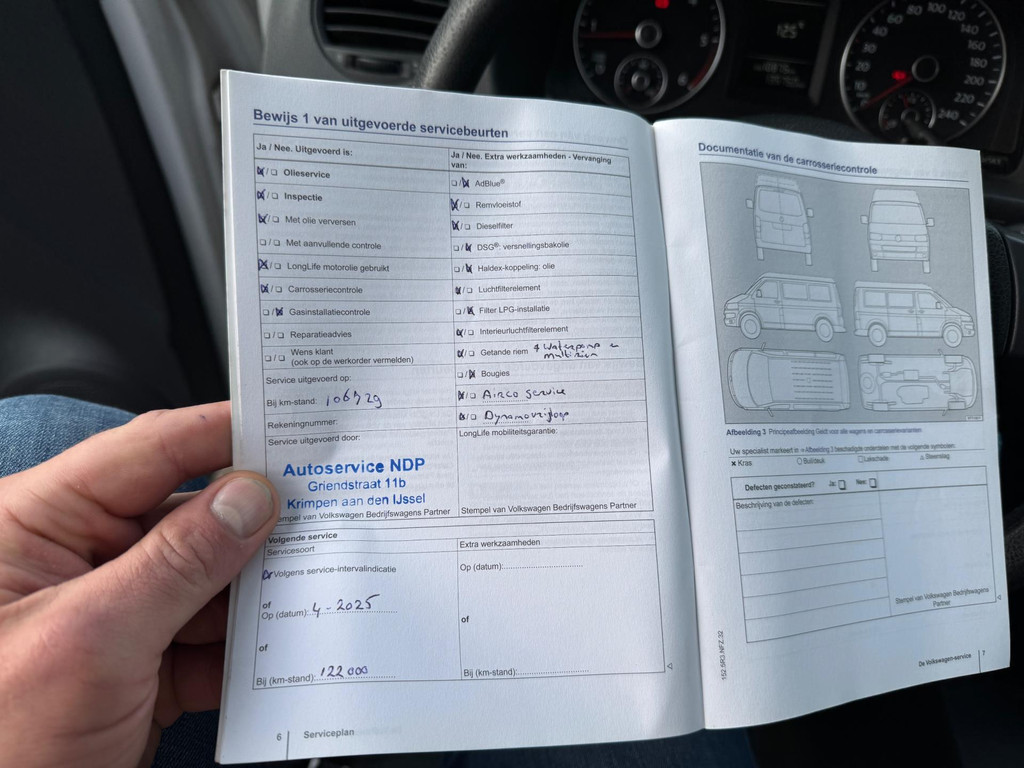 Bewijs 1 van uitgevoerde servicebeurten
Ja / Nee. Uitgevoerd is:
Olieservice
Inspectie
Met olie verversen
Met aanvullende controle
LongLife motorolie gebruikt
Carrosseriecontrole
Gasinstallatiecontrole
Reparatieadvies
Wens klant
(ook op de werkorder vermelden)
Service uitgevoerd op:
Bij km-stand:
Rekeningnummer:
Service uitgevoerd door:
Autoservice NDP
Griendstraat 11b
Krimpen aan den IJssel
Stempel van Volkswagen Bedrijfswagens Partner
Ja / Nee. Extra werkzaamheden - Vervanging
van:
AdBlue®
Remvloeistof
Dieselfilter
DSG®: versnellingsbakolie
Haldex-koppeling: olie
Luchtfilterelement
Filter LPG-installatie
Interieurluchtfilterelement
Getande riem + Waterpomp
multiriem
Bougies
Airco service
Dynamovrijloop
LongLife mobiliteitsgarantie:
Stempel van Volkswagen Bedrijfswagens Partner
Volgende service
Servicesoort
Volgens service-intervalindicatie
of
Op (datum): 4 - 2025
of
Bij (km-stand): 122 000
Extra werkzaamheden
Op (datum):
of
Bij (km-stand):
6 Serviceplan
Documentatie van de carrosseriecontrole
Afbeelding 3 Principeafbeelding Geldt voor alle wagens en carrosserievarianten.
Uw specialist markeert in Afbeelding 3 beschadigde onderdelen met de volgende symbolen:
Kras Buil/deuk Lakschade Steenslag
Defecten geconstateerd? Ja: Nee:
Beschrijving van de defecten:
Stempel van Volkswagen Bedrijfswagens
Partner
152.5R3.NFZ.32
De Volkswagen-service 7
40 60 80 100 120
140
160
180
200
220
240